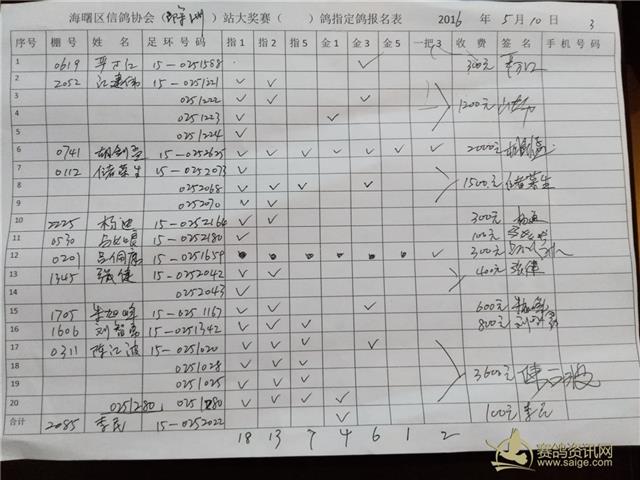 海曙区信鸽协会( )站大奖赛( )鸽指定鸽报名表 2016年5月10日 3
序号 棚号 姓名 足环号码 指1 指2 指5 金1 金3 金5 一把3 收费 签名 手机号码
1 0619 15-0251588 ✓ 300元
2 2052 江建伟 15-0251221 ✓ ✓
3 0251222 ✓ ✓ ✓ 1200元
4 0251223 ✓ ✓
5 0251224 ✓
6 0741 胡剑孟 15-0252625 ✓ ✓ ✓ ✓ ✓ ✓ ✓ 2000元
7 0112 储荣生 15-0252073 ✓
8 0252068 ✓ ✓ ✓ ✓ 1500元 储荣生
9 0252070 ✓ ✓
10 2225 杨迪 15-0252164 ✓ ✓ 300元 杨迪
11 0530 15-0252180 ✓ 100元
12 0201 15-0251659 ✓ 300元
13 1345 张健 15-0252042 ✓ ✓ 400元 张健
14 0252043 ✓
15 1705 朱如峰 15-0251167 ✓ ✓ ✓ 600元
16 1606 刘智勇 15-0251342 ✓ ✓ ✓ 800元
17 0311 陈江波 15-0251020 ✓ ✓ ✓ ✓
18 0251028 ✓ ✓ ✓ 3600元
19 0251025 ✓ ✓ ✓
20 0251280 ✓ ✓ ✓ ✓
合计 2085 李民 15-0252022 ✓ 100元 李民
18 13 7 4 6 1 2
赛鸽资讯网
www.saige.com